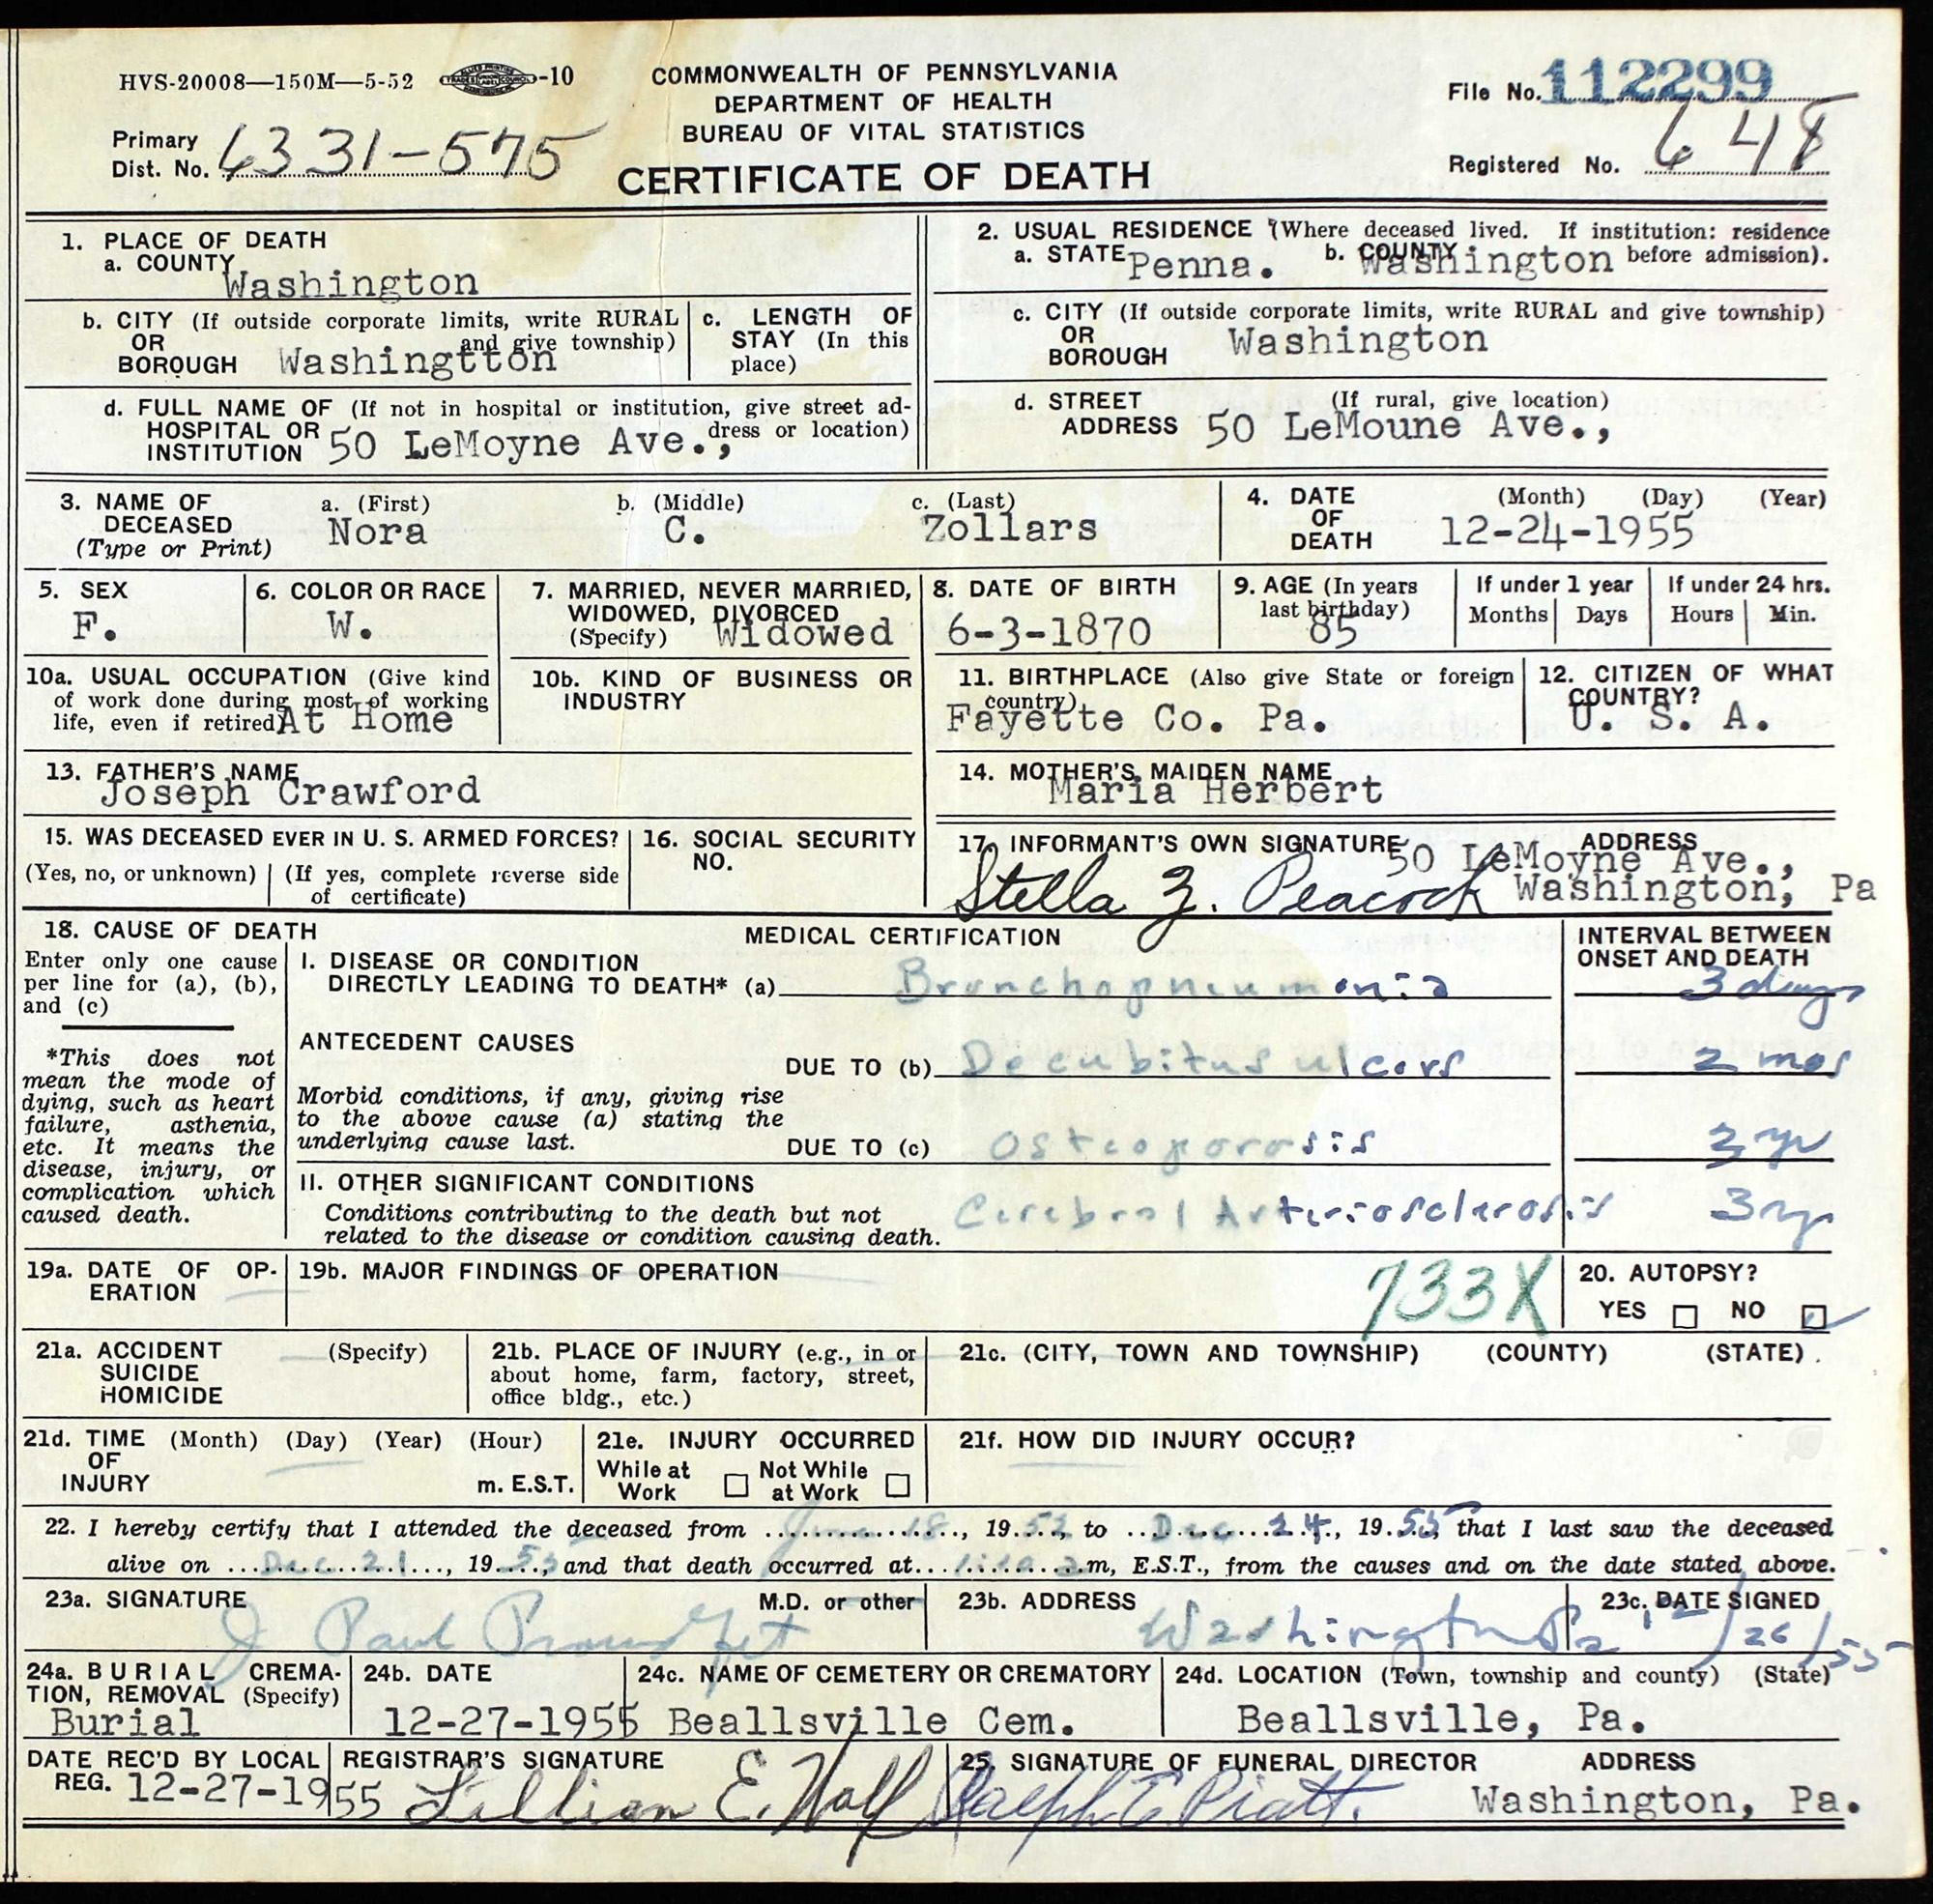 HVS-20008—150M—5-52 -10
COMMONWEALTH OF PENNSYLVANIA
DEPARTMENT OF HEALTH
BUREAU OF VITAL STATISTICS
CERTIFICATE OF DEATH
File No. 112299
Primary Dist. No. 6331-575
Registered No. 648
1. PLACE OF DEATH
a. COUNTY
Washington
b. CITY (If outside corporate limits, write RURAL and give township)
OR
BOROUGH Washingtton
c. LENGTH OF STAY (In this place)
d. FULL NAME OF HOSPITAL OR INSTITUTION (If not in hospital or institution, give street address or location)
50 LeMoyne Ave.,
2. USUAL RESIDENCE (Where deceased lived. If institution: residence before admission).
a. STATE Penna. b. COUNTY Washington
c. CITY (If outside corporate limits, write RURAL and give township)
OR
BOROUGH Washington
d. STREET ADDRESS (If rural, give location)
50 LeMoune Ave.,
3. NAME OF DECEASED (Type or Print)
a. (First) b. (Middle) c. (Last)
Nora C. Zollars
4. DATE OF DEATH (Month) (Day) (Year)
12-24-1955
5. SEX
F.
6. COLOR OR RACE
W.
7. MARRIED, NEVER MARRIED, WIDOWED, DIVORCED (Specify)
Widowed
8. DATE OF BIRTH
6-3-1870
9. AGE (In years last birthday)
85
If under 1 year
Months Days
If under 24 hrs.
Hours Min.
10a. USUAL OCCUPATION (Give kind of work done during most of working life, even if retired)
At Home
10b. KIND OF BUSINESS OR INDUSTRY
11. BIRTHPLACE (Also give State or foreign country)
Fayette Co. Pa.
12. CITIZEN OF WHAT COUNTRY?
U. S. A.
13. FATHER'S NAME
Joseph Crawford
14. MOTHER'S MAIDEN NAME
Maria Herbert
15. WAS DECEASED EVER IN U. S. ARMED FORCES?
(Yes, no, or unknown) (If yes, complete reverse side of certificate)
16. SOCIAL SECURITY NO.
17. INFORMANT'S OWN SIGNATURE ADDRESS
Stella Z. Peacock
50 LeMoyne Ave.,
Washington, Pa
18. CAUSE OF DEATH
Enter only one cause per line for (a), (b), and (c)
*This does not mean the mode of dying, such as heart failure, asthenia, etc. It means the disease, injury, or complication which caused death.
MEDICAL CERTIFICATION
INTERVAL BETWEEN ONSET AND DEATH
I. DISEASE OR CONDITION
DIRECTLY LEADING TO DEATH* (a) Bronchopneumonia 3 days
ANTECEDENT CAUSES
DUE TO (b) Decubitus ulcers 2 mos
Morbid conditions, if any, giving rise to the above cause (a) stating the underlying cause last.
DUE TO (c) Osteoporosis 3 yr
II. OTHER SIGNIFICANT CONDITIONS
Conditions contributing to the death but not related to the disease or condition causing death.
Cerebral Arteriosclerosis 3 yr
19a. DATE OF OPERATION
19b. MAJOR FINDINGS OF OPERATION
733X
20. AUTOPSY?
YES NO
21a. ACCIDENT SUICIDE HOMICIDE (Specify)
21b. PLACE OF INJURY (e.g., in or about home, farm, factory, street, office bldg., etc.)
21c. (CITY, TOWN AND TOWNSHIP) (COUNTY) (STATE)
21d. TIME OF INJURY (Month) (Day) (Year) (Hour)
m. E.S.T.
21e. INJURY OCCURRED
While at Work Not While at Work
21f. HOW DID INJURY OCCUR?
22. I hereby certify that I attended the deceased from June 18, 1952, to Dec 24, 1955, that I last saw the deceased
alive on Dec 21, 1955, and that death occurred at m, E.S.T., from the causes and on the date stated above.
23a. SIGNATURE M.D. or other
J Paul Proudfit
23b. ADDRESS
Washington Pa
23c. DATE SIGNED
12/26/55
24a. BURIAL, CREMATION, REMOVAL (Specify)
Burial
24b. DATE
12-27-1955
24c. NAME OF CEMETERY OR CREMATORY
Beallsville Cem.
24d. LOCATION (Town, township and county) (State)
Beallsville, Pa.
DATE REC'D BY LOCAL REG. 12-27-1955
REGISTRAR'S SIGNATURE
Lillian E.
25. SIGNATURE OF FUNERAL DIRECTOR ADDRESS
Ralph E. Piatt. Washington, Pa.